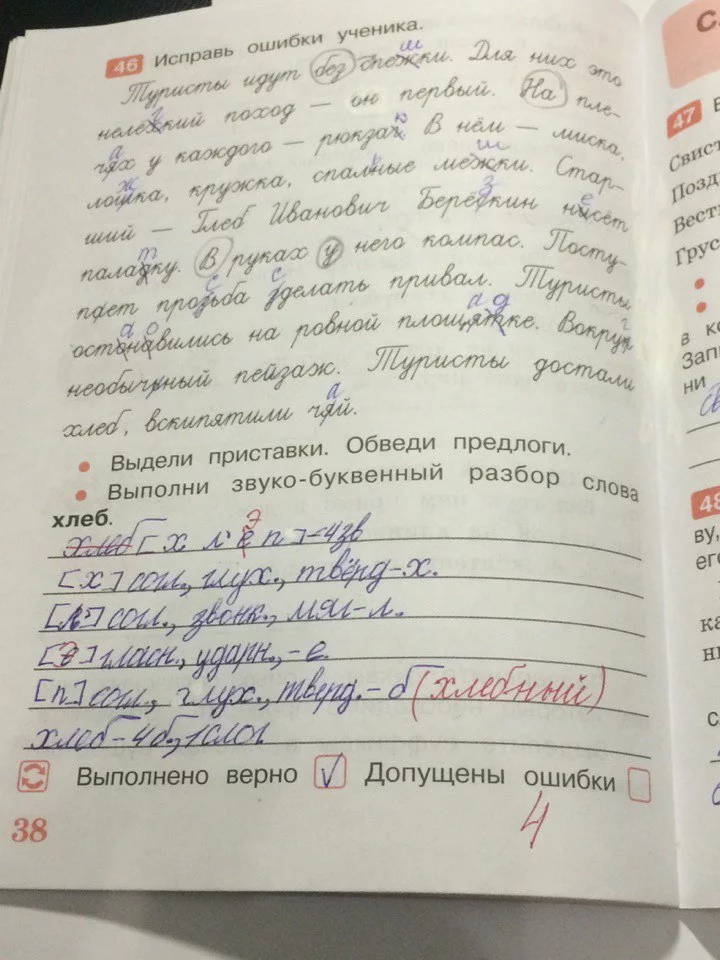 46 Исправь ошибки ученика.
Туристы идут без спежки. Для них это
нелехкий поход — он первый. На пле-
чях у каждого — рюкзаг. В нём — миска,
лошка, кружка, спалные межки. Стар-
ший — Глеб Иванович Берёскин нисёт
паладку. В руках у него компас. Посту-
пает прозьба зделать привал. Туристы
остонавились на ровной площятке. Вокрук
необычьный пейзаж. Туристы достали
хлеб, вскипятили чяй.
• Выдели приставки. Обведи предлоги.
• Выполни звуко-буквенный разбор слова
хлеб.
хлеб [х л' э п] – 4зв
[х] согл., глух., твёрд – х.
[л'] согл., звонк., мяг – л.
[э] гласн., ударн., – е.
[п] согл., глух., тверд. – б (хлебный)
хлеб – 4 б., 1 слог
Выполнено верно V Допущены ошибки
38
4
С
47
Свист
Позд
Вест
Грус
в к
Запи
ни
48
ву,
его
ка